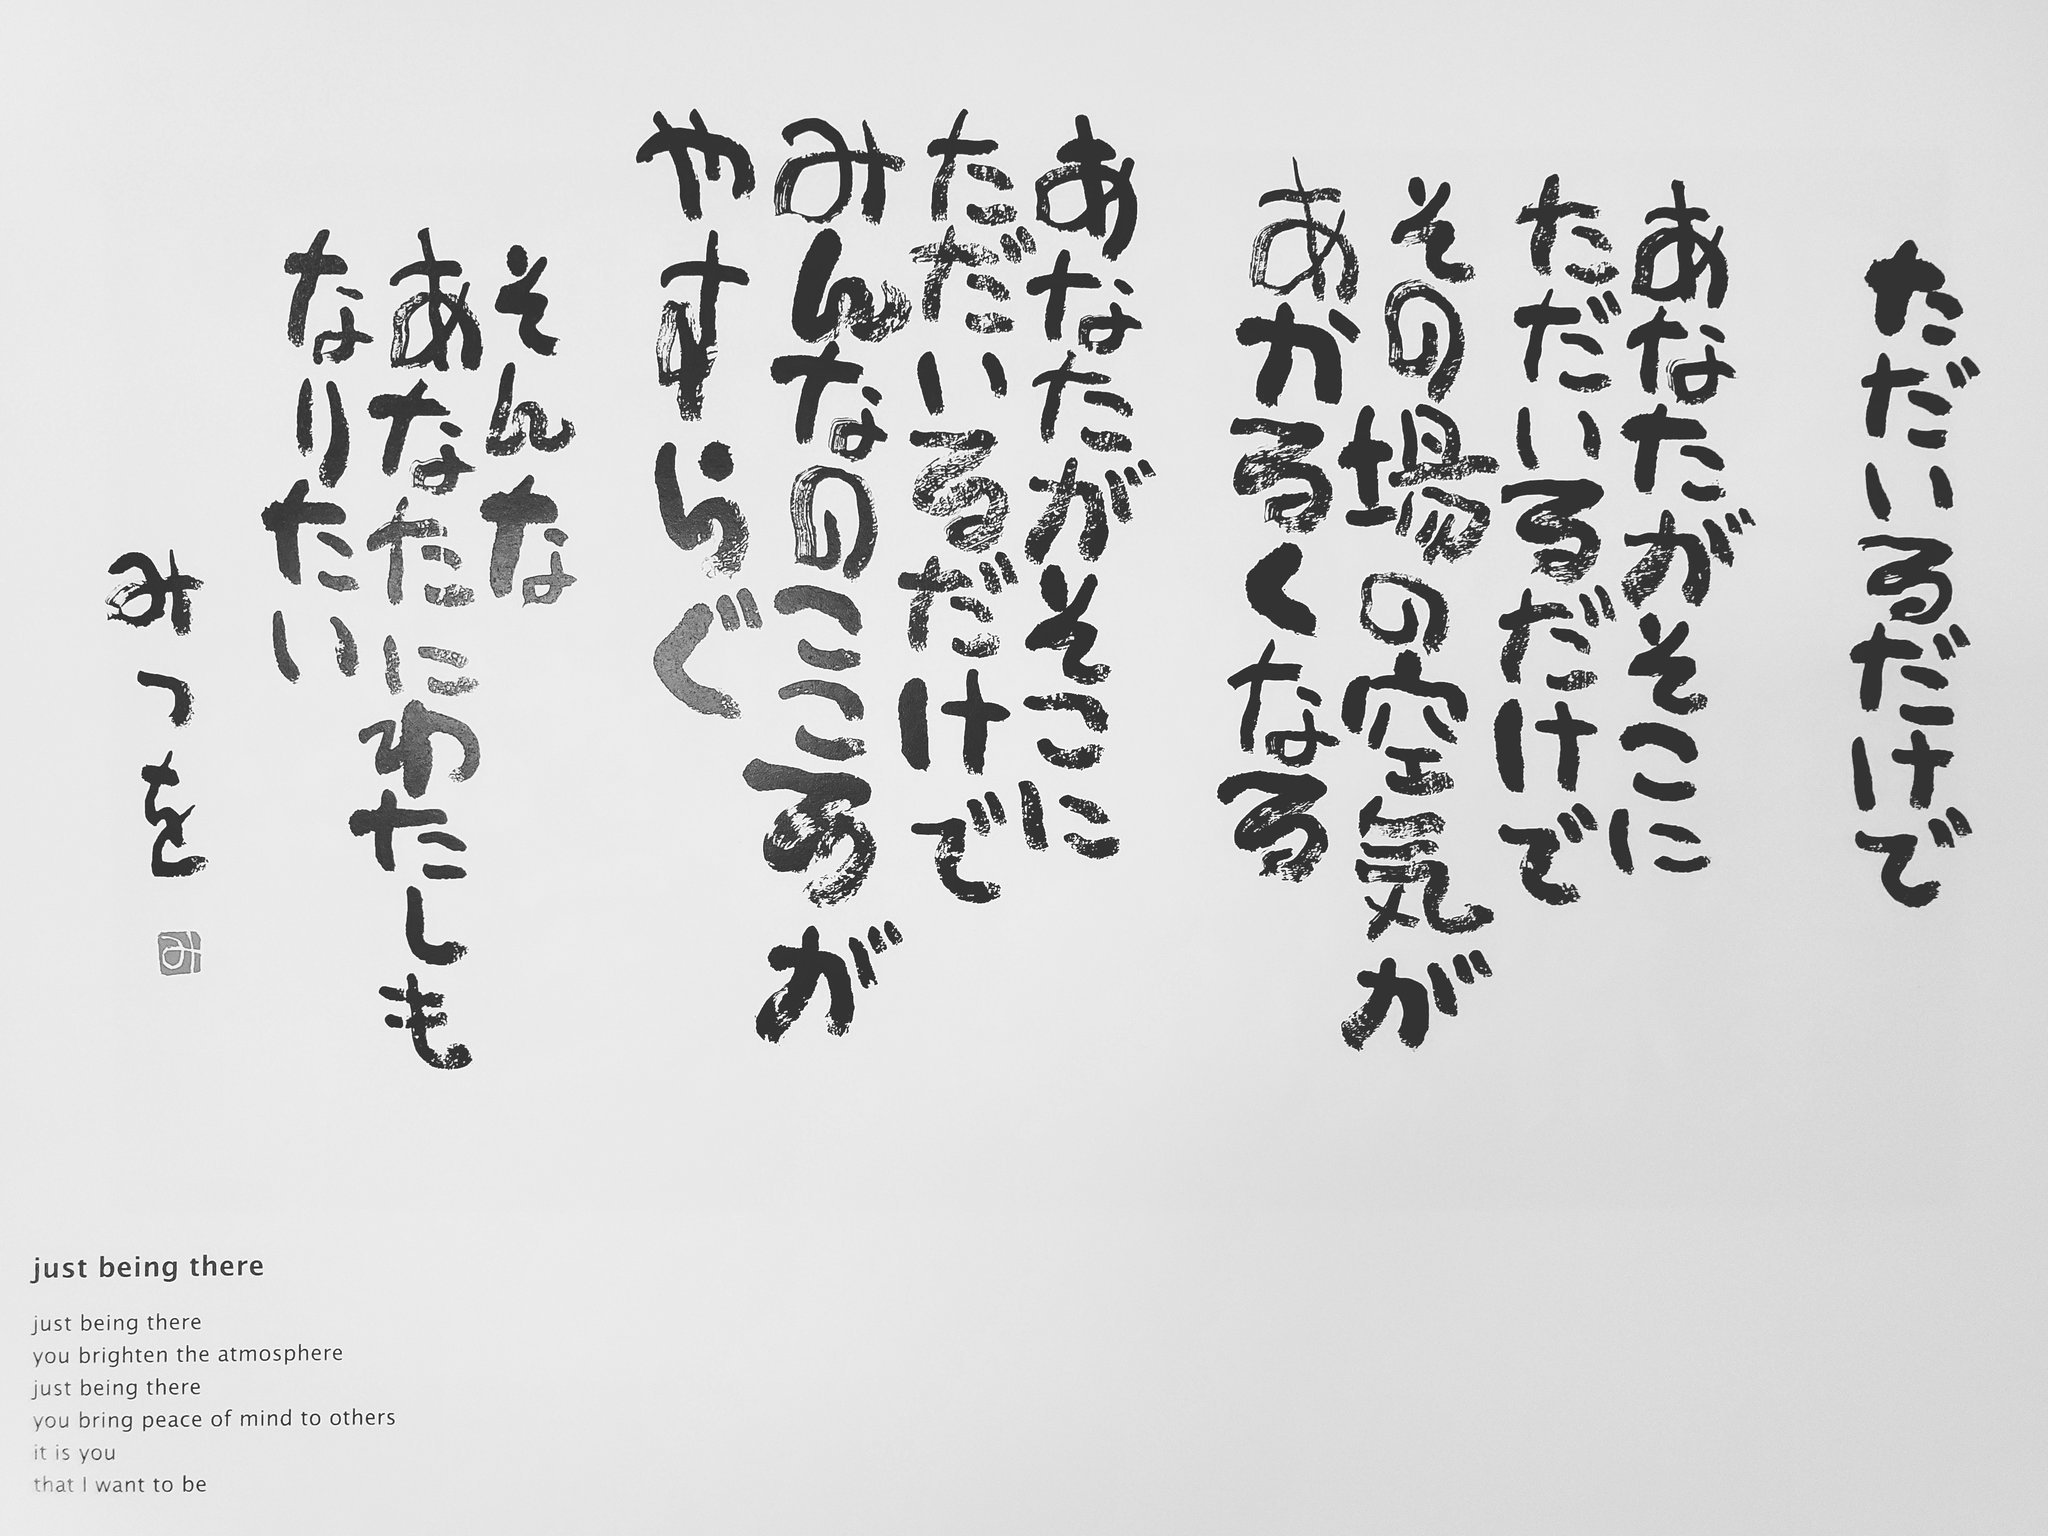 ただいるだけで
あなたがそこに
ただいるだけで
その場の空気が
あかるくなる
あなたがそこに
ただいるだけで
みんなのこころが
やすらぐ
そんな
あなたにわたしも
なりたい
みつを
み
just being there
just being there
you brighten the atmosphere
just being there
you bring peace of mind to others
it is you
that I want to be